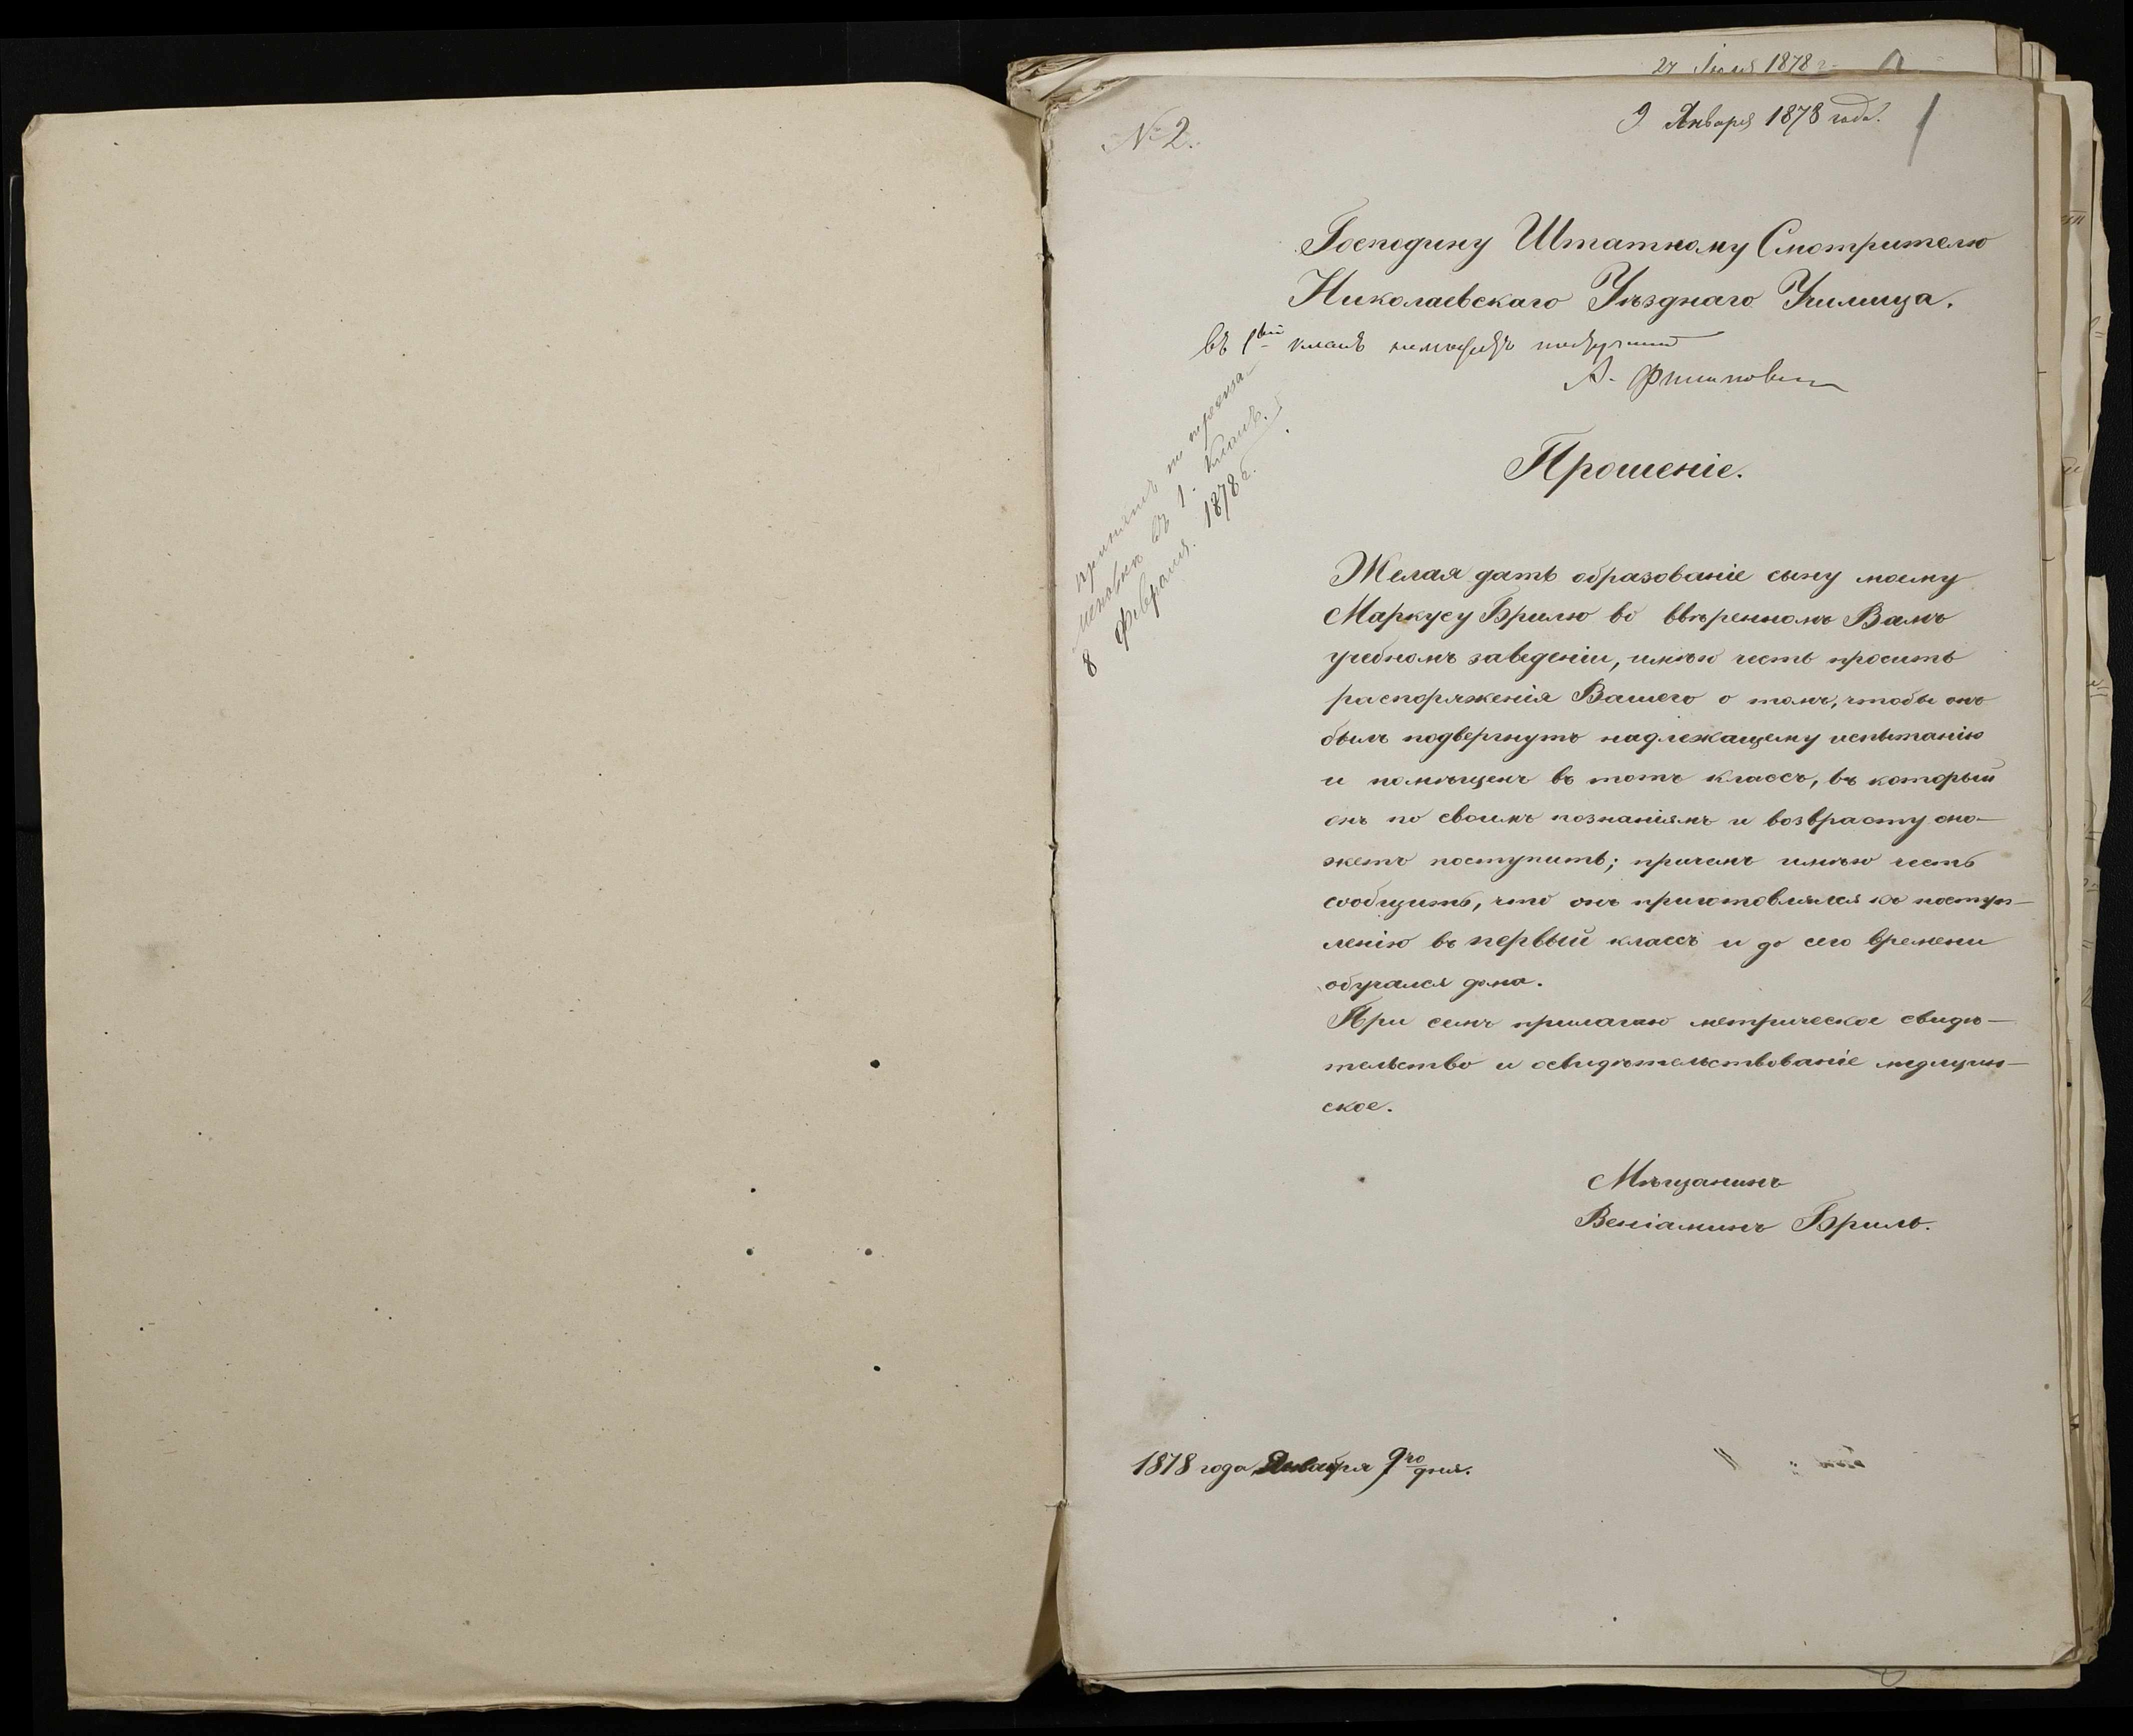 27 Июля 1878 г.
9 Января 1878 года.
1
№ 2.
Господину Штатному Смотрителю
Николаевскаго Уѣзднаго Училища.
въ 1-ый классъ
А. Филиповичъ
принятъ по экзаме-
8 Февраля. 1878 г.
въ 1. классъ.
Прошеніе.
Желая дать образованіе сыну моему
Маркусу Брилю во ввѣренномъ Вамъ
учебномъ заведеніи, имѣю честь просить
распоряженія Вашего о томъ, чтобы онъ
былъ подвергнутъ надлежащему испытанію
и помѣщенъ въ тотъ классъ, въ который
онъ по своимъ познаніямъ и возврасту смо-
жетъ поступить; причемъ имѣю честь
сообщить, что онъ приготовлялся къ поступ-
ленію въ первый классъ и до сего времени
обучался дома.
При семъ прилагаю метрическое свидѣ-
тельство и освидѣтельствованіе медицин-
ское.
Мѣщанинъ
Веніаминъ Бриль.
1878 года Января 9го дня.